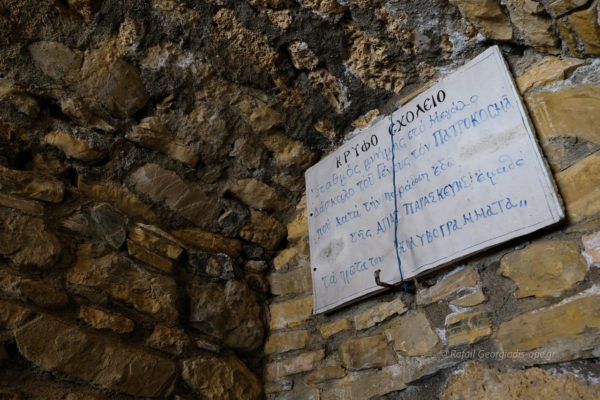 ΚΡΥΦΟ ΣΧΟΛΕΙΟ
σταθμός μνήμης στό Μεγάλο
δάσκαλο τοῦ Γένους τόν ΠΑΤΡΟΚΟΣΜΑ
πού κατά τήν παράδοση ἐδῶ
τῆς ΑΓΙΑΣ ΠΑΡΑΣΚΕΥΗΣ ἔμαθε
τά πρῶτα του
© Rafail Georgiadis-ope.gr